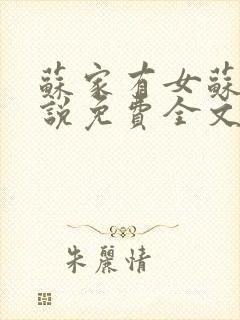 蘇家有女蘇
說免費全文
朱麗情